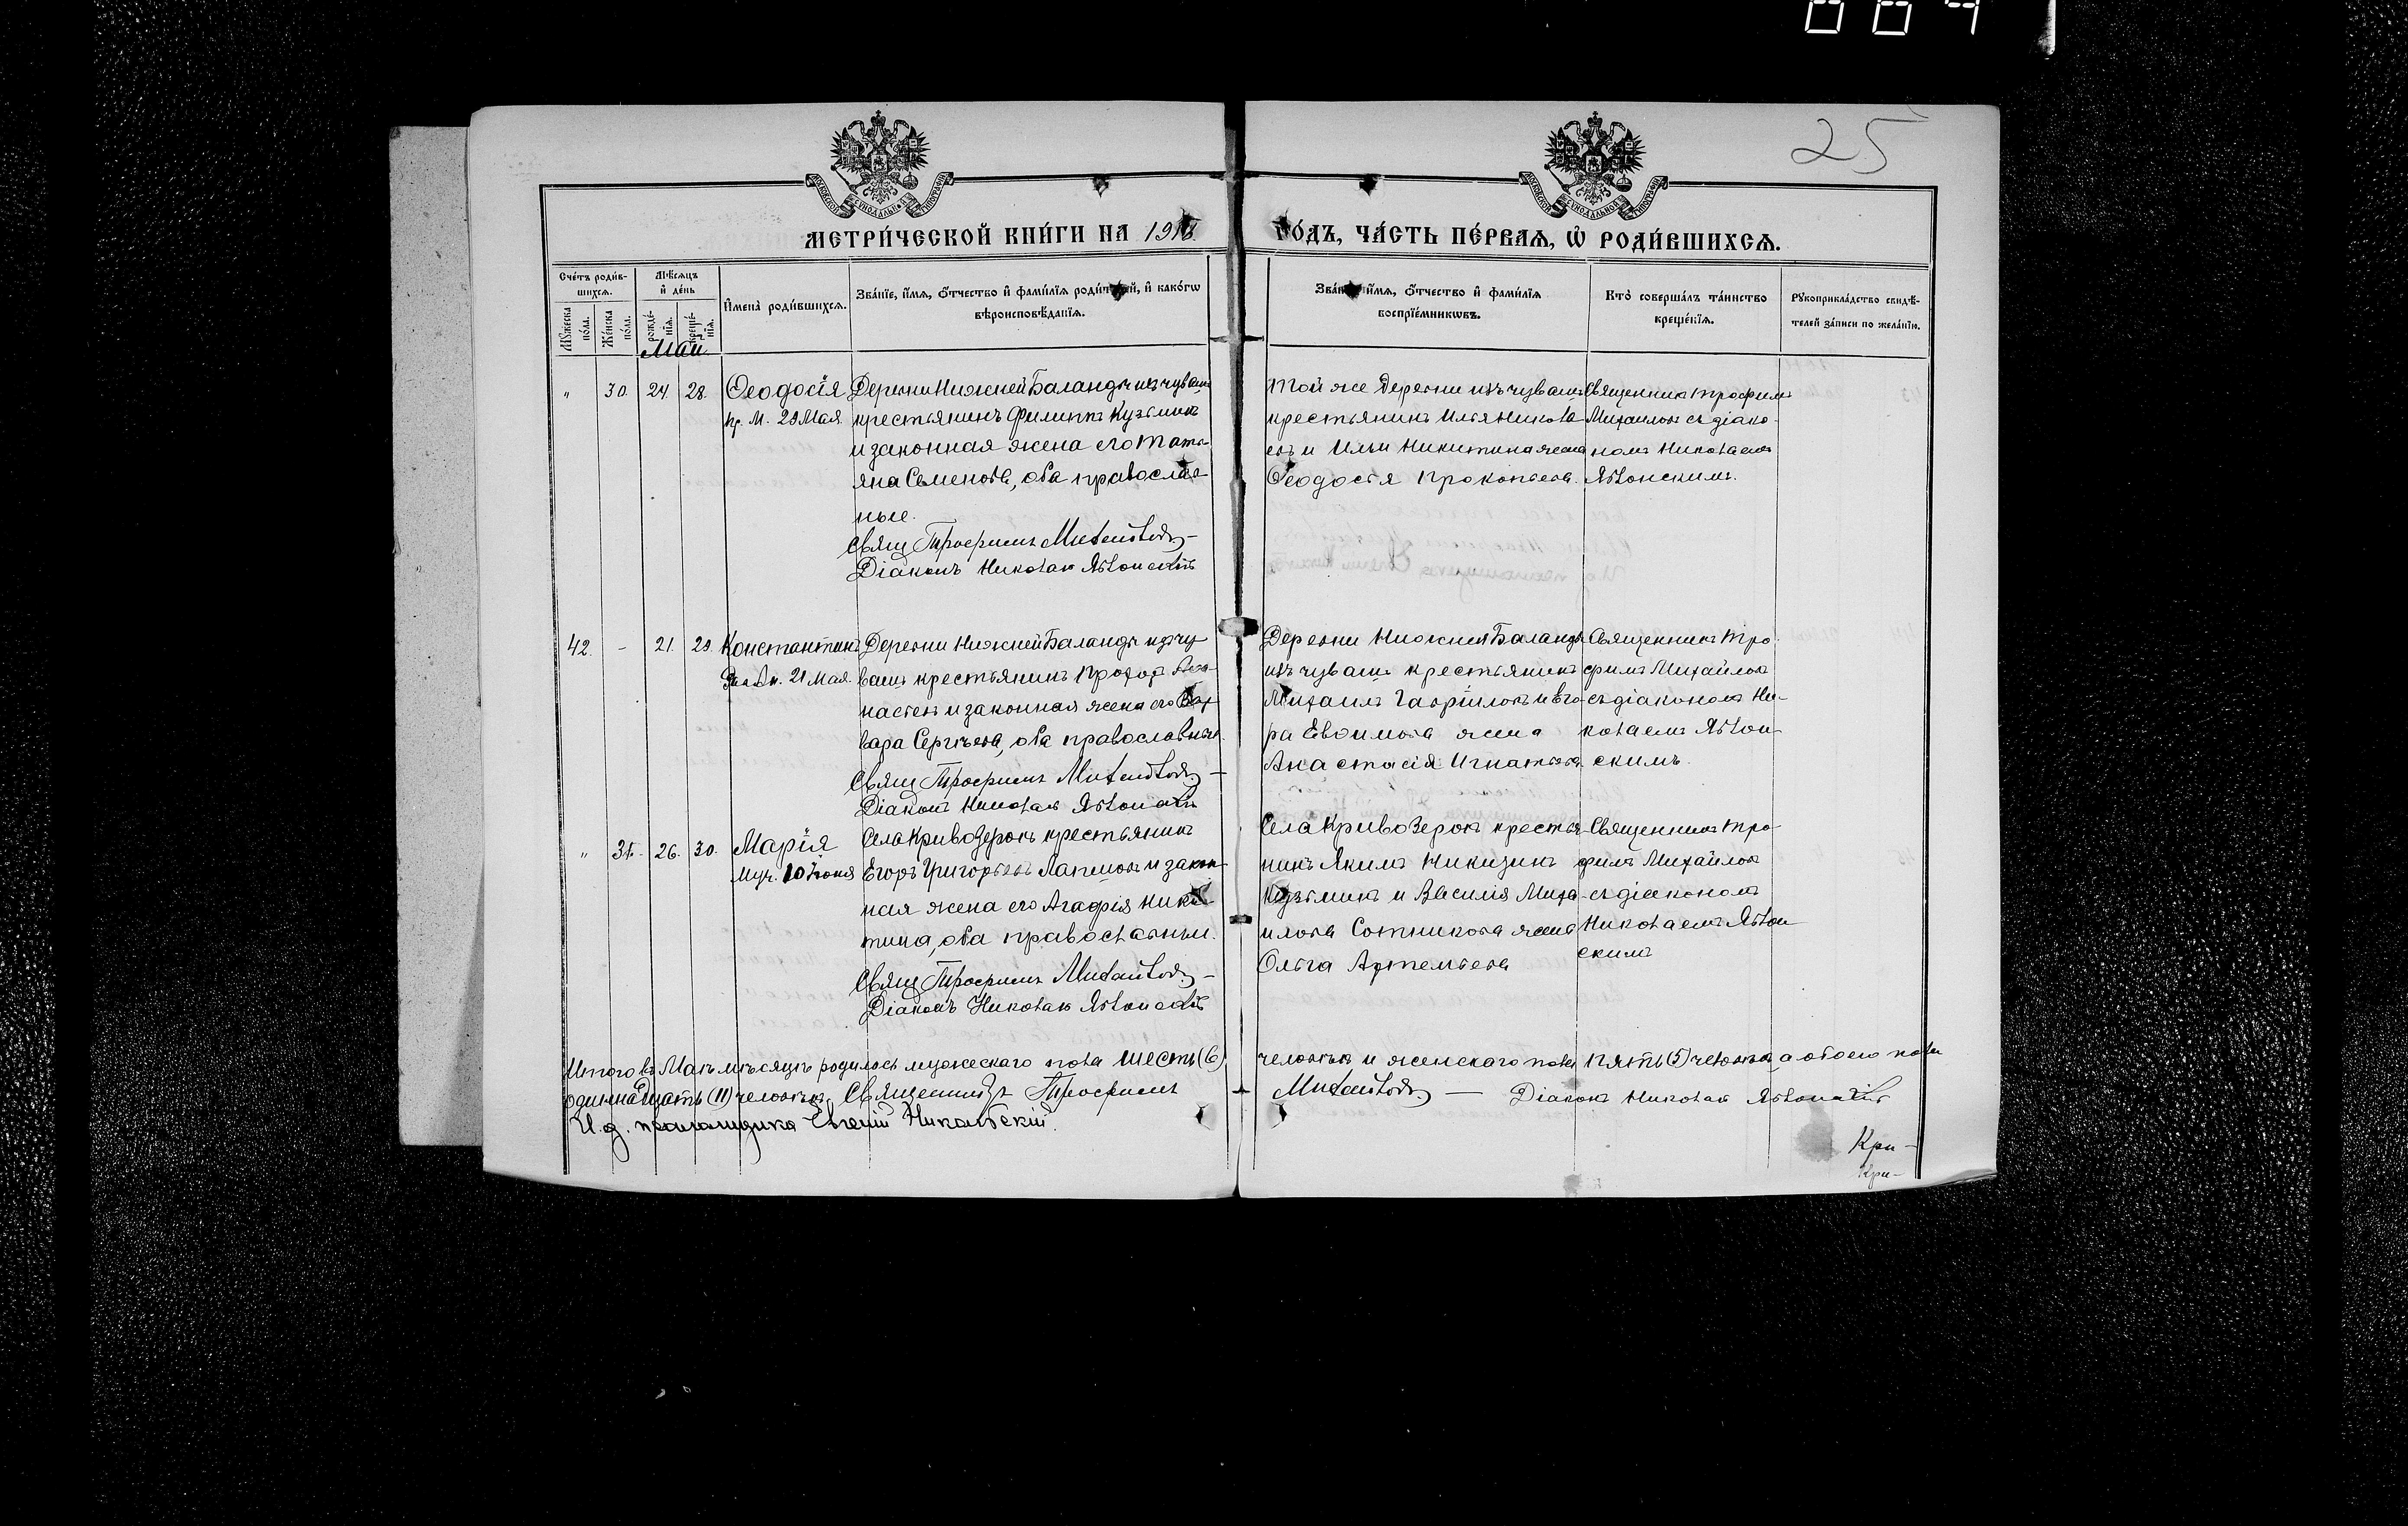 25
МЕТРИ́ЧЕСКОЙ КНИ́ГИ НА 1916 ГО́ДЪ, ЧА́СТЬ ПЕ́РВАѦ, Ѡ҆ РОДИ́ВШИХСѦ.
Сче́тъ роди́в-
шихсѧ.
Мꙋ́жеска по́ла.
Же́нска по́ла.
Мѣ́сѧцъ
и҆ де́нь
рожде́-
нїѧ.
креще́-
нїѧ.
И҆мена̀ роди́вшихсѧ.
Зва́нїе, и҆́мѧ, ѻ҆́тчество и҆ фами́лїѧ роди́телей, и҆ како́гѡ
вѣроисповѣ́данїѧ.
Зва́нїе, и҆́мѧ, ѻ҆́тчество и҆ фами́лїѧ
воспрїе́мникѡвъ.
Кто̀ соверша́лъ та́инство
креще́нїѧ.
Рꙋкоприкла́дство свидѣ́-
телей за́писи по жела́нїю.
Май.
" 30. 24. 28.
Ѳеодосія
пр. М. 29 Мая.
Деревни Нижней Баланды изъ чувашъ
крестьянинъ Филиппъ Кузьминъ
и законная жена его Татья-
яна Семенова, оба православ-
ные.
Свящ Трофимъ Михайловъ
Діаконъ Николай Яблонскій
Той же деревни изъ чувашъ
крестьянинъ Илья Никола-
евъ и Ильи Никитина жена
Ѳеодосія Прокопьева.
Священникъ Трофимъ
Михайловъ съ діако-
номъ Николаемъ
Яблонскимъ.
42. – 21. 29.
Константинъ
21 Мая.
Деревни Нижней Баланды изъ чу-
вашъ крестьянинъ Прохоръ Аѳа-
насьевъ и законная жена его Вар-
вара Сергѣева, оба православные.
Свящ Трофимъ Михайловъ
Діаконъ Николай Яблонскій
Деревни Нижней Баланды
изъ чувашъ крестьянинъ
Михаилъ Гавріиловъ и Его-
ра Евѳимова жена
Анастасія Игнатьева
Священникъ Тро-
фимъ Михайловъ
съ діакономъ Ни-
колаемъ Яблон-
скимъ.
" 31. 26. 30.
Марія
Муч. 10 Іюня
Села Кривозерокъ крестьянинъ
Егоръ Григорьевъ Лапшовъ и закон-
ная жена его Агафія Ники-
тина, оба православные.
Свящ Трофимъ Михайловъ
Діаконъ Николай Яблонскій
Села Кривозерокъ крестья-
нинъ Якимъ Никизинъ
Кузьминъ и Василія Миха-
илова Сотникова жена
Ольга Артемьева
Священникъ Тро-
фимъ Михайловъ
съ діакономъ
Николаемъ Яблон-
скимъ
Итого въ Маѣ мѣсяцѣ родилось мужескаго пола шесть (6) человѣкъ и женскаго пола пять (5) человѣкъ, а обоего пола
одиннадцать (11) человѣкъ. Священникъ Трофимъ Михайловъ — Діаконъ Николай Яблонскій
И. д. псаломщика Евгеній Никольскій.
Кри-
Кри-